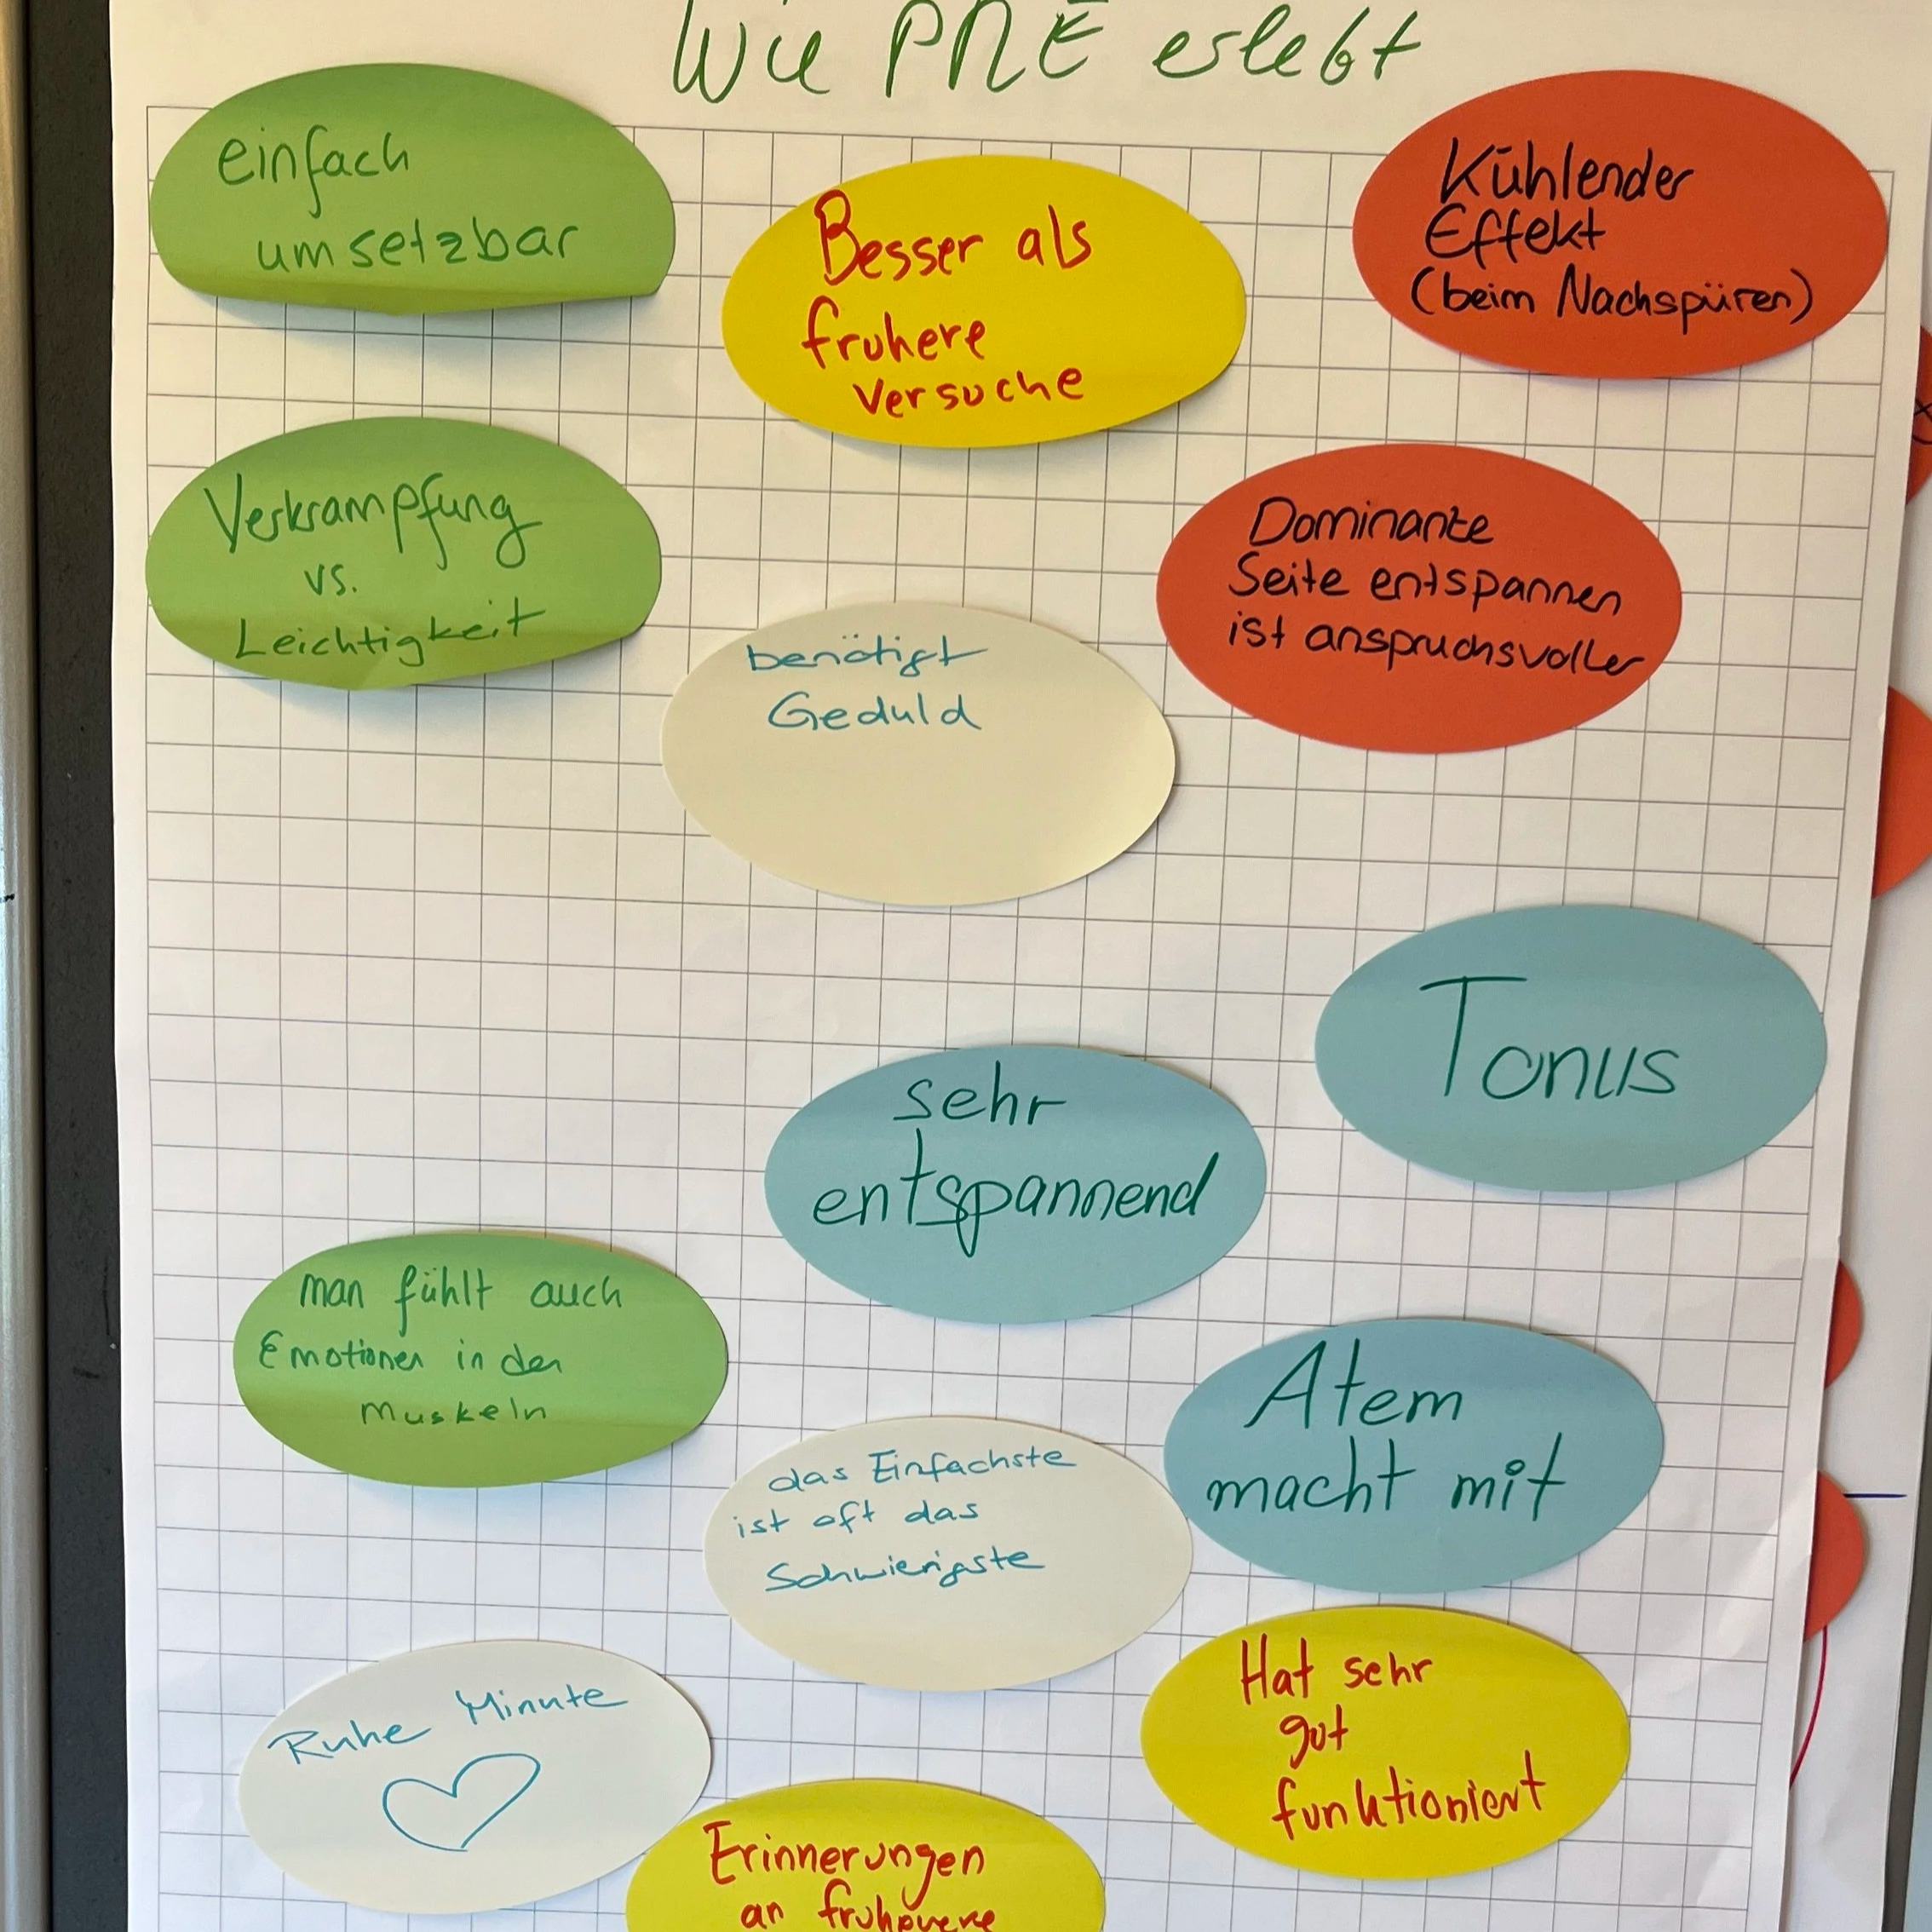 Wie PME erlebt
einfach
umsetzbar
Besser als
fruhere
Versuche
Kühlender
Effekt
(beim Nachspüren)
Verkrampfung
vs.
Leichtigkeit
Dominante
Seite entspannen
ist anspruchsvoller
benötigt
Geduld
Tonus
sehr
entspannend
man fühlt auch
Emotionen in den
Muskeln
Atem
macht mit
das Einfachste
ist oft das
Schwierigste
Ruhe Minute
Hat sehr
gut
funktioniert
Erinnerungen
an